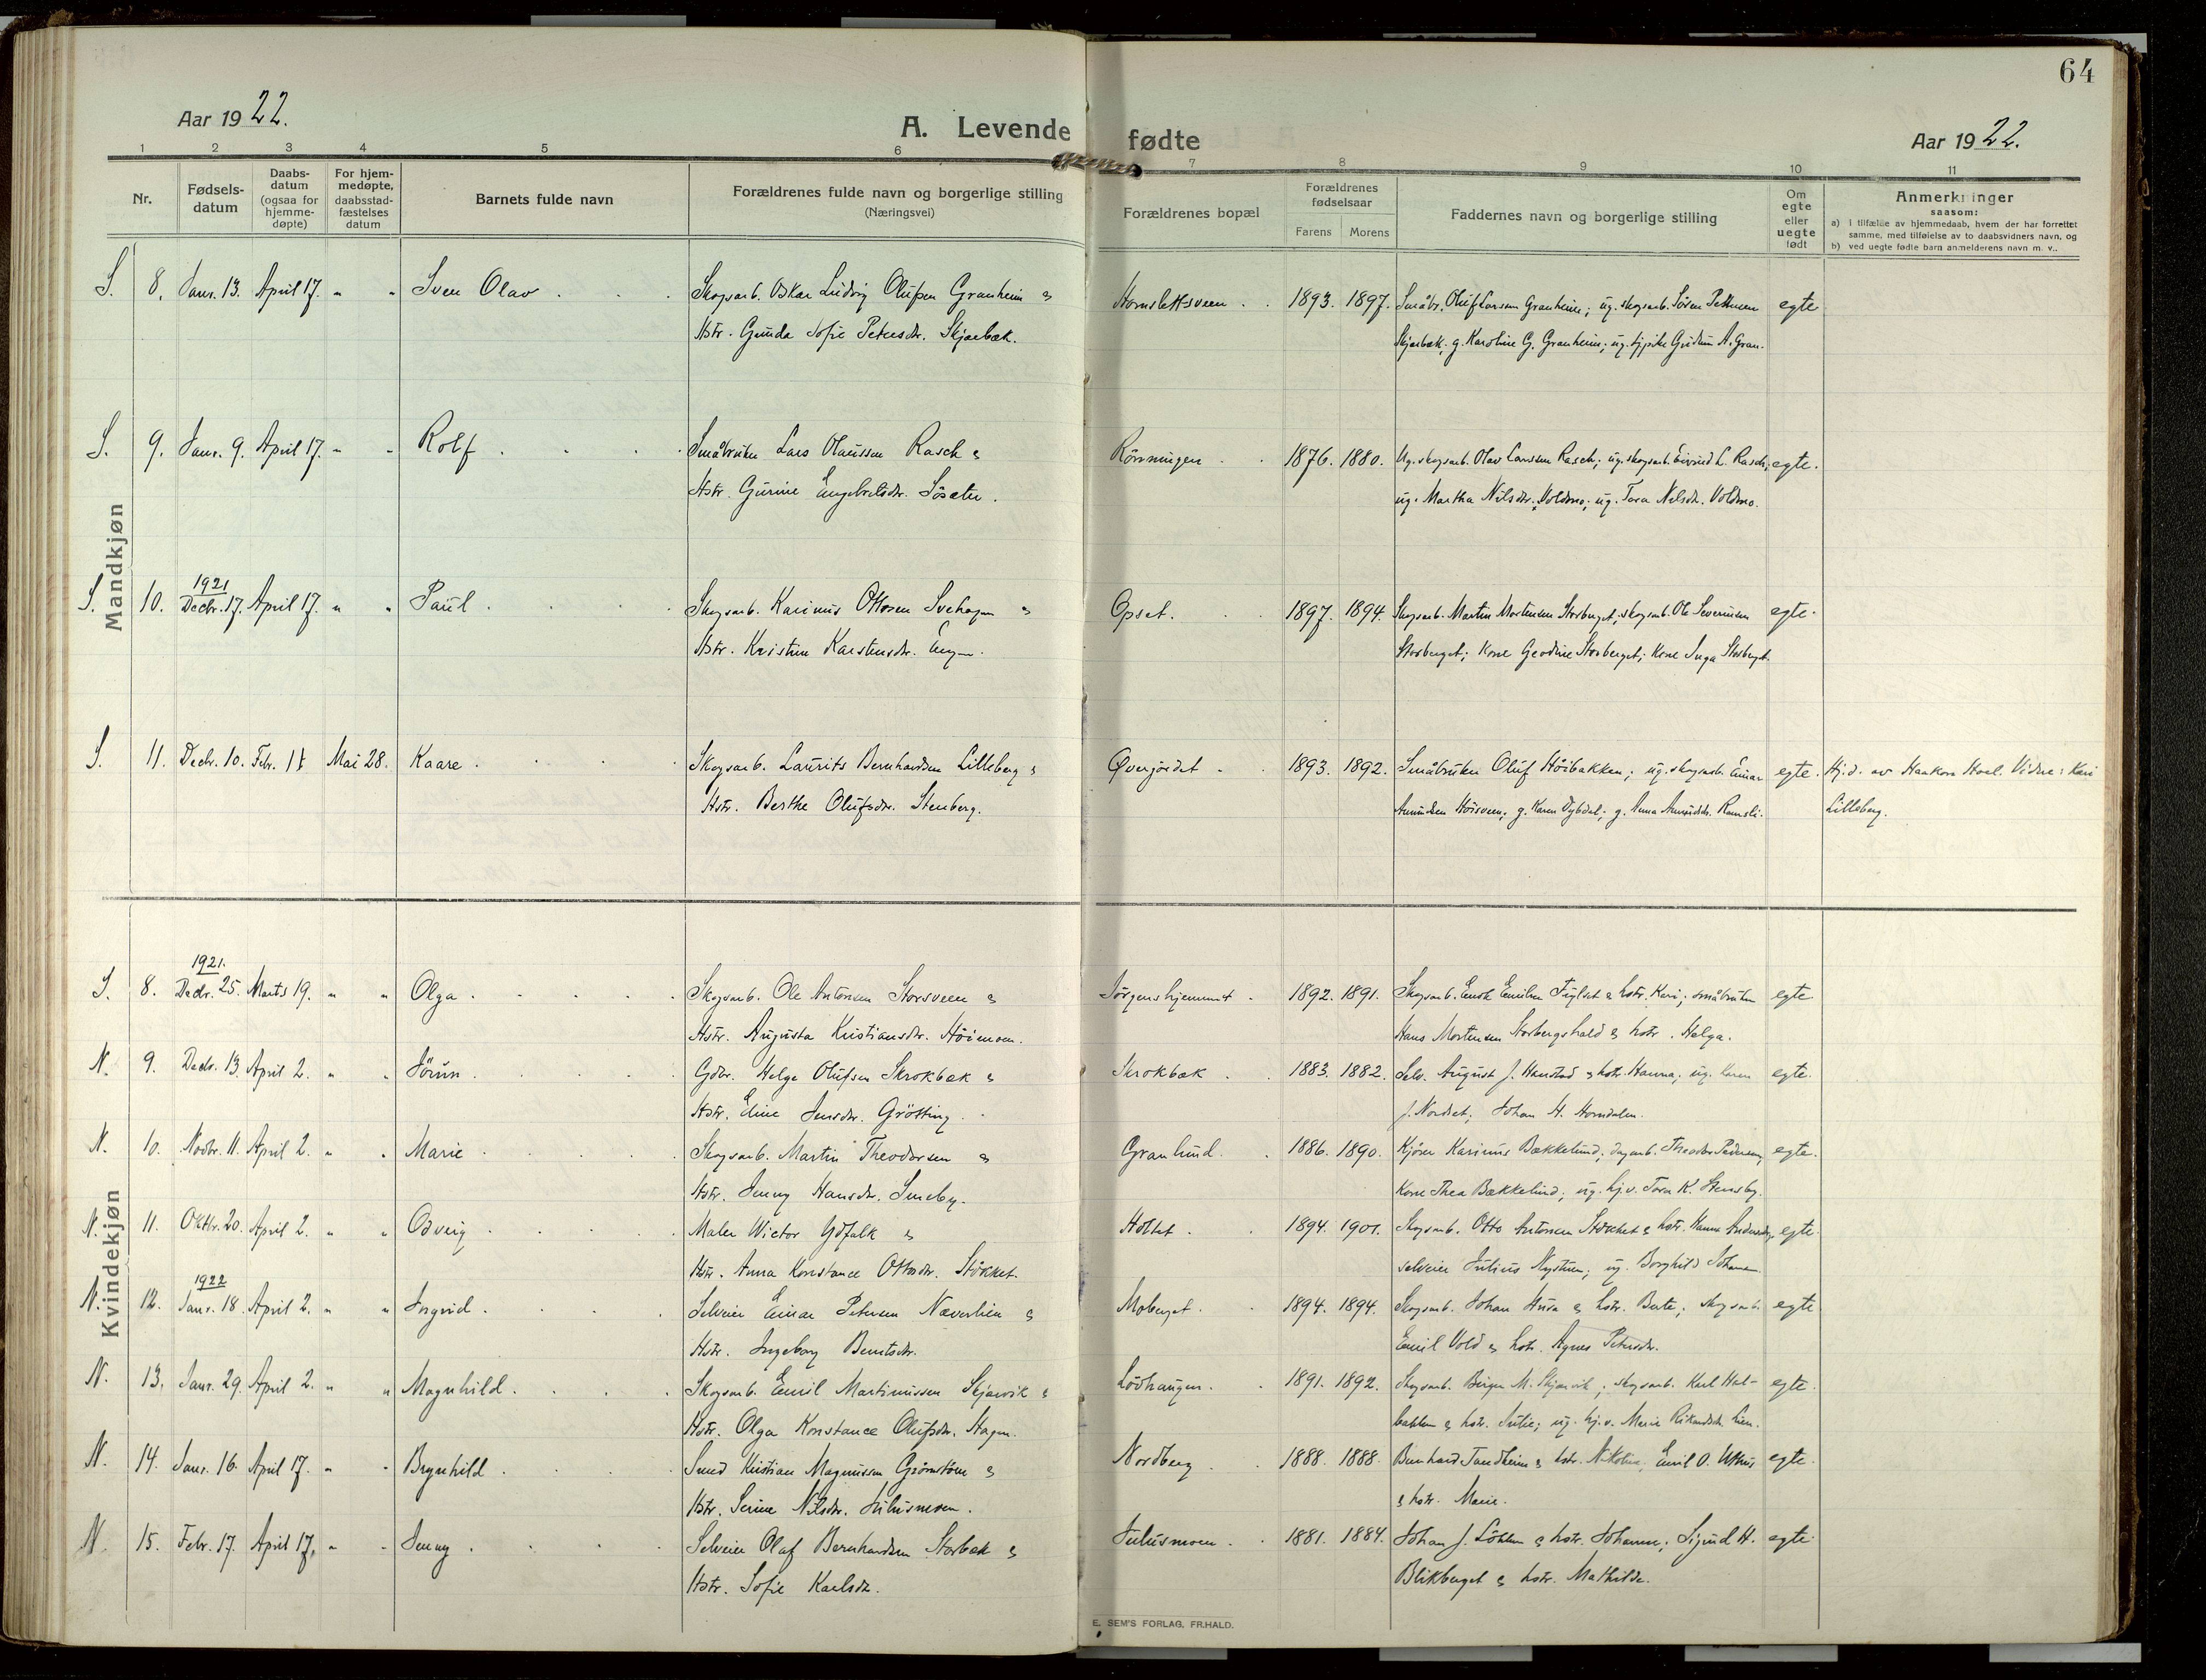 64
Aar 1922.
A. Levende fødte
Aar 1922.
1 2 3 4 5 6 7 8 9 10 11
Nr.
Fødsels-
datum
Daabs-
datum
(ogsaa for
hjemme-
døpte)
For hjem-
medøpte,
daabsstad-
fæstelses
datum
Barnets fulde navn
Forældrenes fulde navn og borgerlige stilling
(Næringsvei)
Forældrenes bopæl
Forældrenes
fødselsaar
Farens Morens
Faddernes navn og borgerlige stilling
Om
egte
eller
uegte
født
Anmerkninger
saasom:
a) i tilfælde av hjemmedaab, hvem der har forrettet
samme, med tilføielse av to daabsvidners navn, og
b) ved uegte fødte barn anmelderens navn m. v..
Mandkjøn
S. 8. Janr. 13. April 17. " " Sven Olav . . . Skogsarb. Oskar Ludvig Olufsen Granheim & Hornslettsveen . . 1893. 1897. Småbr. Oluf Larsen Granheim; ug. skogsarb. Søren Pettersen egte
Hstr. Gunda Sofie Petersdr. Skjærbæk. Skjærbæk; g. Karoline G. Granheim; ug. Gudrun A. Gran.
S. 9. Janr. 9. April 17. " " Rolf . . . . Småbruker Lars Olaussen Rasch & Rønningen . . 1876. 1880. Ug. skogsarb. Olav Larssen Rasch; ug. skogsarb. Eivind L. Rasch; egte.
Hstr. Gurine Engebretsdr. Søsæter. ug. Martha Nilsdr. Voldmo; ug. Tora Nilsdr. Voldmo.
1921
S. 10. Decbr. 17. April 17. " " Paul . . . . Skogsarb. Karinus Ottosen Svehagen & Opset. . . 1897. 1894. Skogsarb. Martin Mortensen Storberget; skogsarb. Ole Severinsen egte.
Hstr. Kristine Karstensdr. Engen. Storberget; Kone Geodine Storberget; Kone Inga Storberget.
S. 11. Decbr. 10. Febr. 11 Mai 28. Kaare . . . . Skogsarb. Laurits Bernhardsen Lilleberg & Øvergjørdet . . 1893. 1892. Småbruker Oluf Høibakken; ug. skogsarb. Einar egte. Hj.d. av Haakon Hoel. Vidne: Kari
Hstr. Berthe Olufsdr. Stenberg. Amundsen Moisveen; g. Karen Dybdal; g. Anna Amundsdr. Ramsli. Lilleberg.
Kvindekjøn
1921.
S. 8. Decbr. 25. Marts 19. " " Olga . . . . Skogsarb. Ole Antonsen Storsveen & Jørgenshjemmet . 1892. 1891. Skogsarb. Enok Emilsen Fuglset & hstr. Kari; småbruker egte
Hstr. Augusta Kristiansdr. Høimoen. Hans Mortensen Storbergshald & hstr. Helga.
N. 9. Decbr. 13. April 2. " " Jørun . . . . Gdbr. Helge Olufsen Skrokbæk & Skrokbæk . . 1883. 1882. Selv. August J. Hanstad & hstr. Hanna; ug. Karen egte.
Hstr. Eline Jensdr. Grøtting. J. Nordset; Johan H. Horndalen.
N. 10. Novbr. 11. April 2. " " Marie . . . . Skogsarb. Martin Theodorsen & Granlund. . 1886. 1890. Kjører Karinus Bækkelund; dagarb. Theodor Pedersen; egte.
Hstr. Jenny Hansdr. Smeby. Kone Thea Bækkelund; ug. hj.v. Tora K. Stensby.
N. 11. Oktbr. 20. April 2. " " Odveig . . . Maler Victor Ydfalk & Holtet . . 1894. 1901. Skogsarb. Otto Antonsen Støkket & hstr. Hanna Andersdr., egte.
Hstr. Anna Konstance Ottosdr. Støkket. selveier Julius Nystuen; ug. Borghild Johansen.
1922
N. 12. Janr. 18. April 2. " " Ingrid . . . . Selveier Einar Petersen Næverlien & Moberget . . 1894. 1894. Skogsarb. Johan Husa & hstr. Berte; skogsarb. egte
Hstr. Ingeborg Berntsdr. Emil Vold & hstr. Agnes Petersdr.
N. 13. Janr. 29. April 2. " " Magnhild . . . . Skogsarb. Emil Martinussen Skjærvik & Løvhaugen . . 1891. 1892. Skogsarb. Birger M. Skjærvik; skogsarb. Karl Hal- egte.
Hstr. Olga Konstance Olufsdr. Hagen. bakken & hstr. Julie; ug. hj.v. Marie Rikardsdr. Lien.
N. 14. Janr. 16. April 17. " " Brynhild . . . . Smed Kristian Magnussen Grønstøen & Nordberg . . 1888. 1888. Bernhard Sandheim & hstr. Nikoline, Emil O. Uthus egte.
Hstr. Serine Nilsdr. Juliusmoen. & hstr. Marie.
N. 15. Febr. 17. April 17. " " Jenny . . . . Selveier Olaf Bernhardsen Storbæk & Juliusmoen . . 1881. 1884. Johan J. Løkken & hstr. Johanne; Sigurd H. egte.
Hstr. Sofie Karlsdr. Blikberget & hstr. Mathilde.
E. SEM'S FORLAG, FR.HALD.